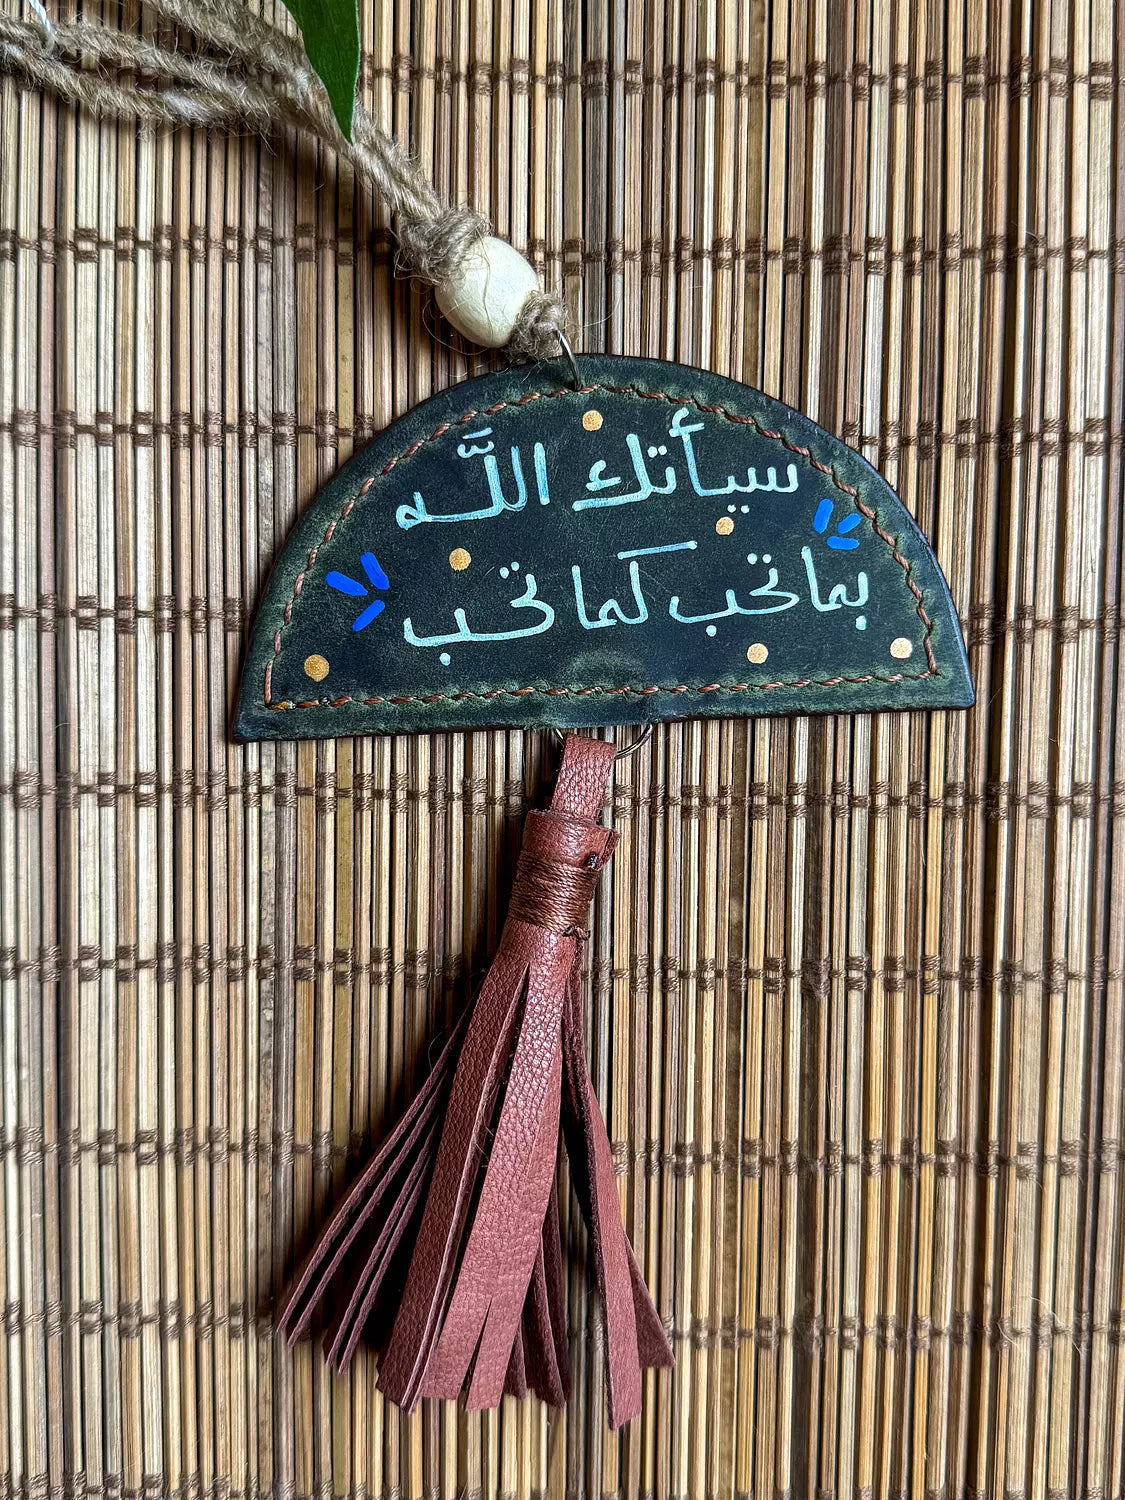 سيأتك اللَّه
بما تحب كما تحب